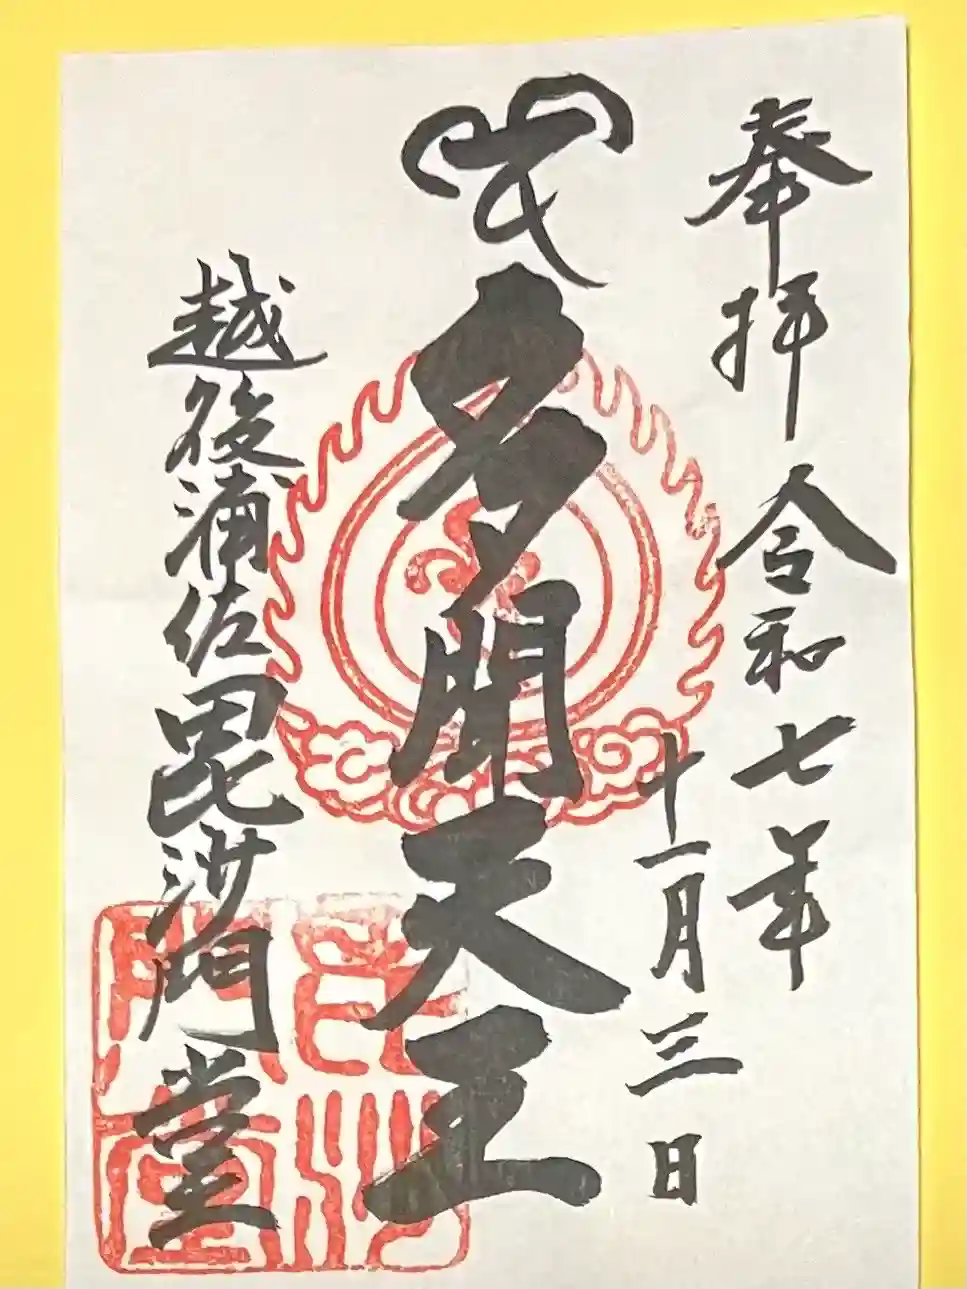 奉拝 令和七年
十一月三日
多聞天王
越後浦佐毘沙門堂
毘沙門堂